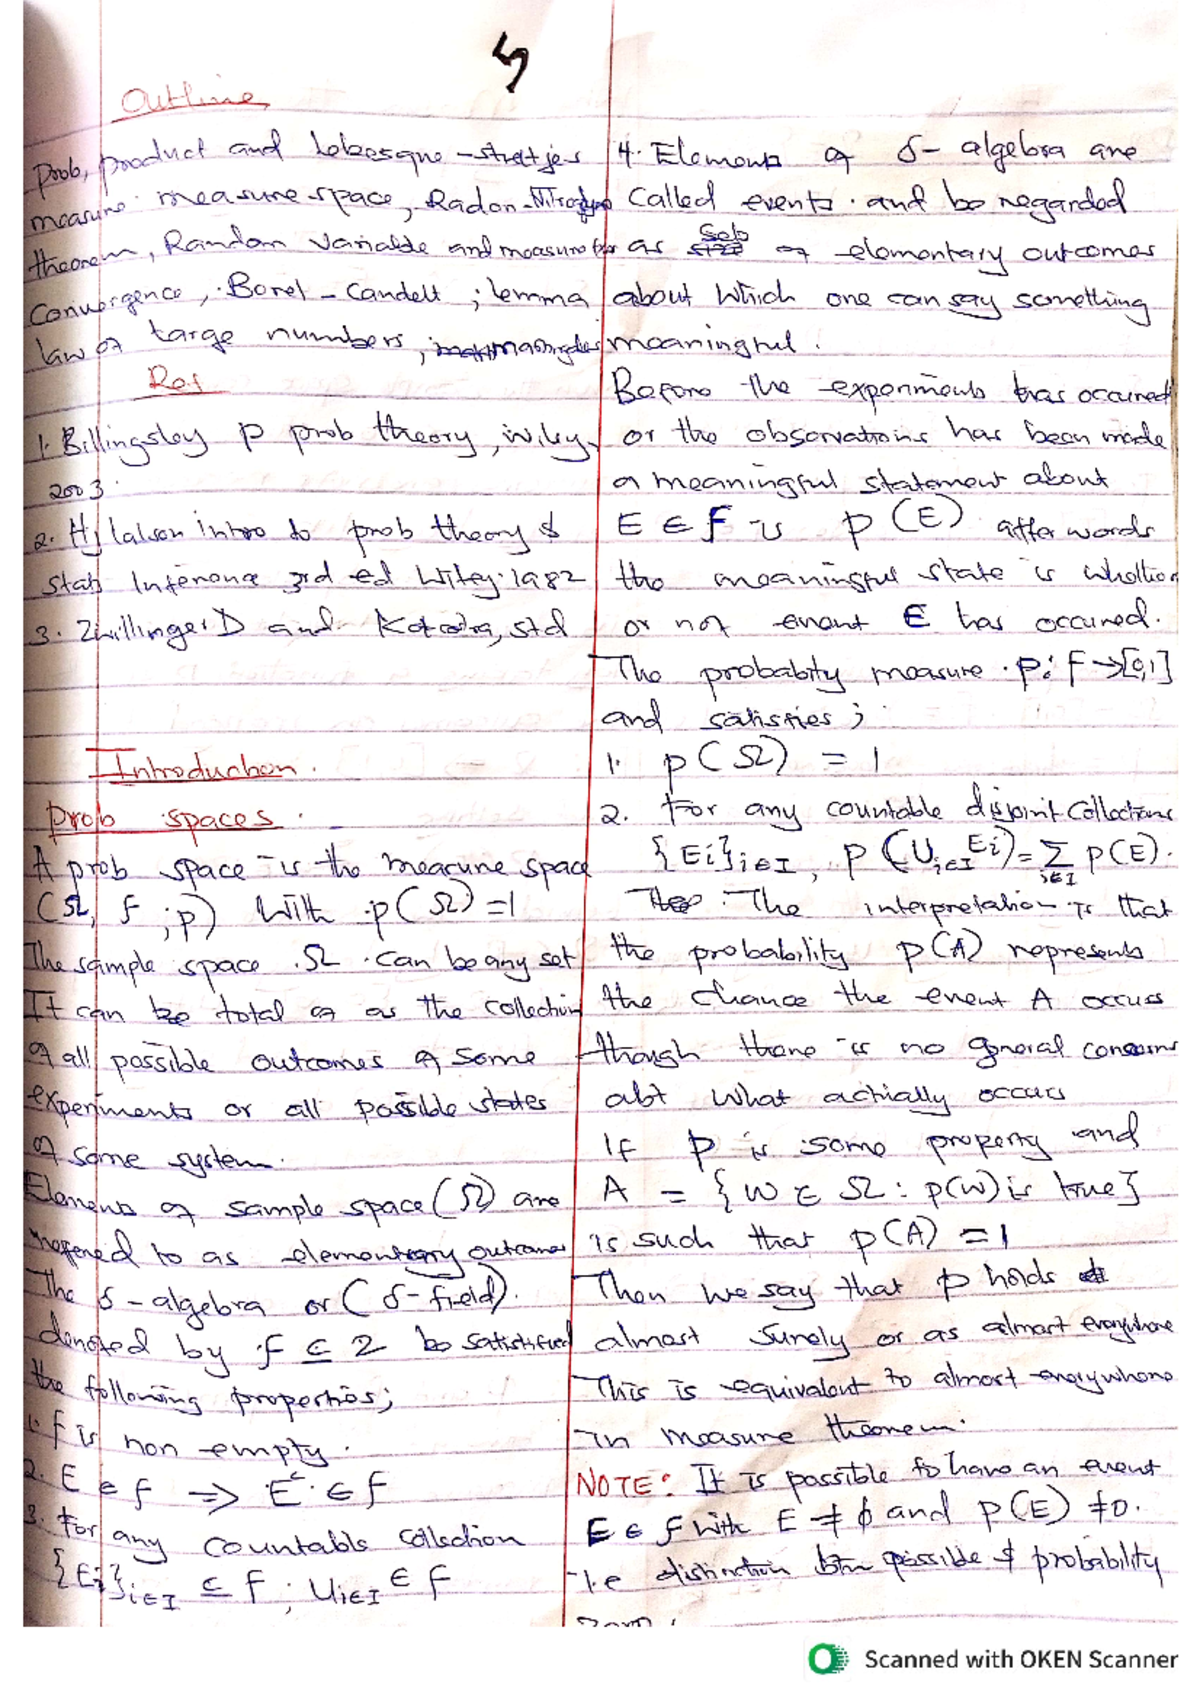 Outline
prob, product and Lebesgue - streltjes
measure measure space, Radon-Nitrodyne
theorem, Random Variable and measure
Convergence, Borel - Candelt ; lemma
law of large numbers,
Ref
1. Billingsley P prob theory, wiley,
2003.
2. Hj lalson intro to prob theory &
Stats Inference 3rd ed Wiley. 1982
3. Zwillinger D and Kokoska, Std
Introduction.
Prob spaces.
A prob space is the measure space
(Ω, F ; P) With P(Ω) = 1
The sample space Ω can be any set
It can be total of as the collection
of all possible outcomes of some
experiments or all possible states
of some system.
Elements of sample space (Ω) are
refered to as elementary outcomes
The δ - algebra or (δ-field).
denoted by F ⊆ 2 be satistified
the following properties;
1. F is non empty.
2. E ∈ F ⇒ Eᶜ ∈ F
3. For any countable collection
{Ei}i∈I ⊆ F ; Ui∈I ∈ F
4. Elements of δ- algebra are
Called events. and be regarded
as Sets of elementary outcomes
about which one can say something
meaningful.
Before the experiments has occured
or the observations has been made
a meaningful statement about
E ∈ F is P(E) after words
the meaningful state is whether
or not event E has occured.
The probabity measure P: F → [0,1]
and satisfies ;
1. P(Ω) = 1
2. For any countable disjoint Collections
{Ei}i∈I, P(Ui∈I Ei) = Σi∈I P(E).
The interpretation is that
the probability P(A) represents
the chance the event A occuss
though there is no general concerns
abt what actially occurs
If P is some property and
A = {W ∈ Ω : P(W) is true}
is such that P(A) = 1
Then we say that P holds
almost surely or as almost everywhere
This is equivalent to almost everywhere
in measure theorem.
NOTE: It is possible to have an event
E ∈ F with E ≠ ϕ and P(E) ≠ 0.
i.e distinction btn possible & probability
zero.
Scanned with OKEN Scanner